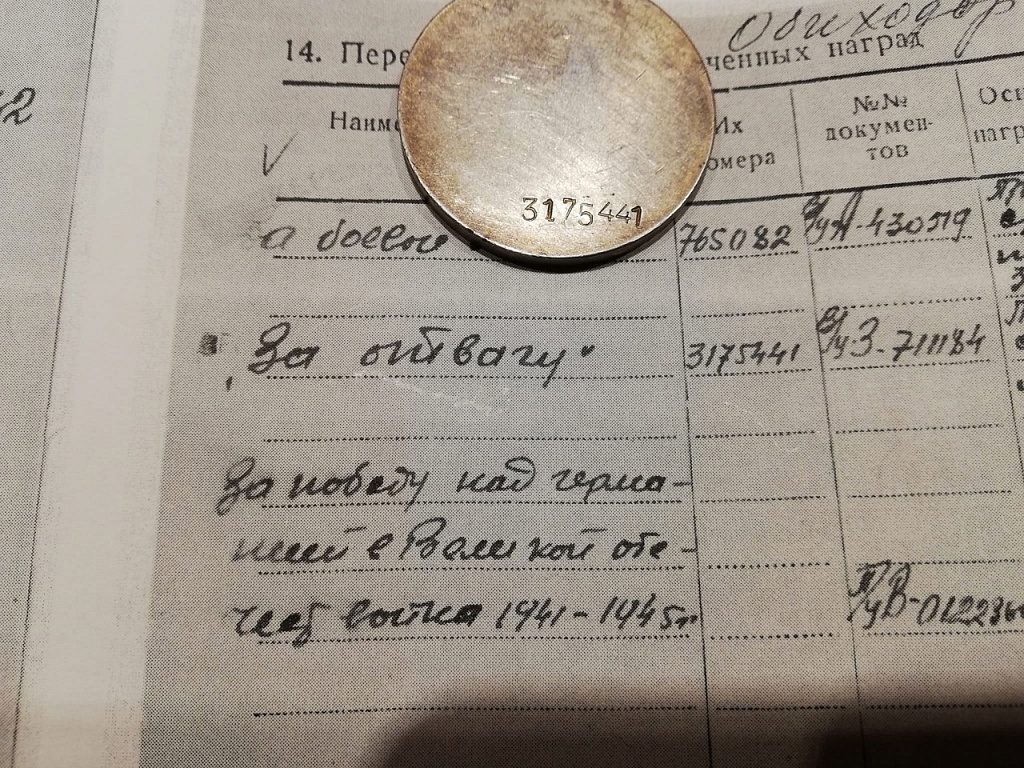 Обиходор
14. Пере ченных наград
Наиме Их омера №№ докумен- тов Осн нагр
42
3175441
а боевы 765082 430519
"За отвагу" 3175441 З-711184
За победу над герма-
нией в Великой оте-
чест войне 1941-1945г.